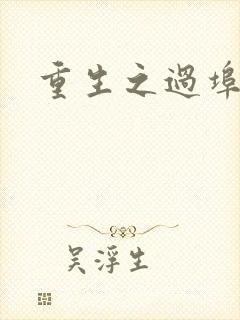 重生之過埠
吴浮生